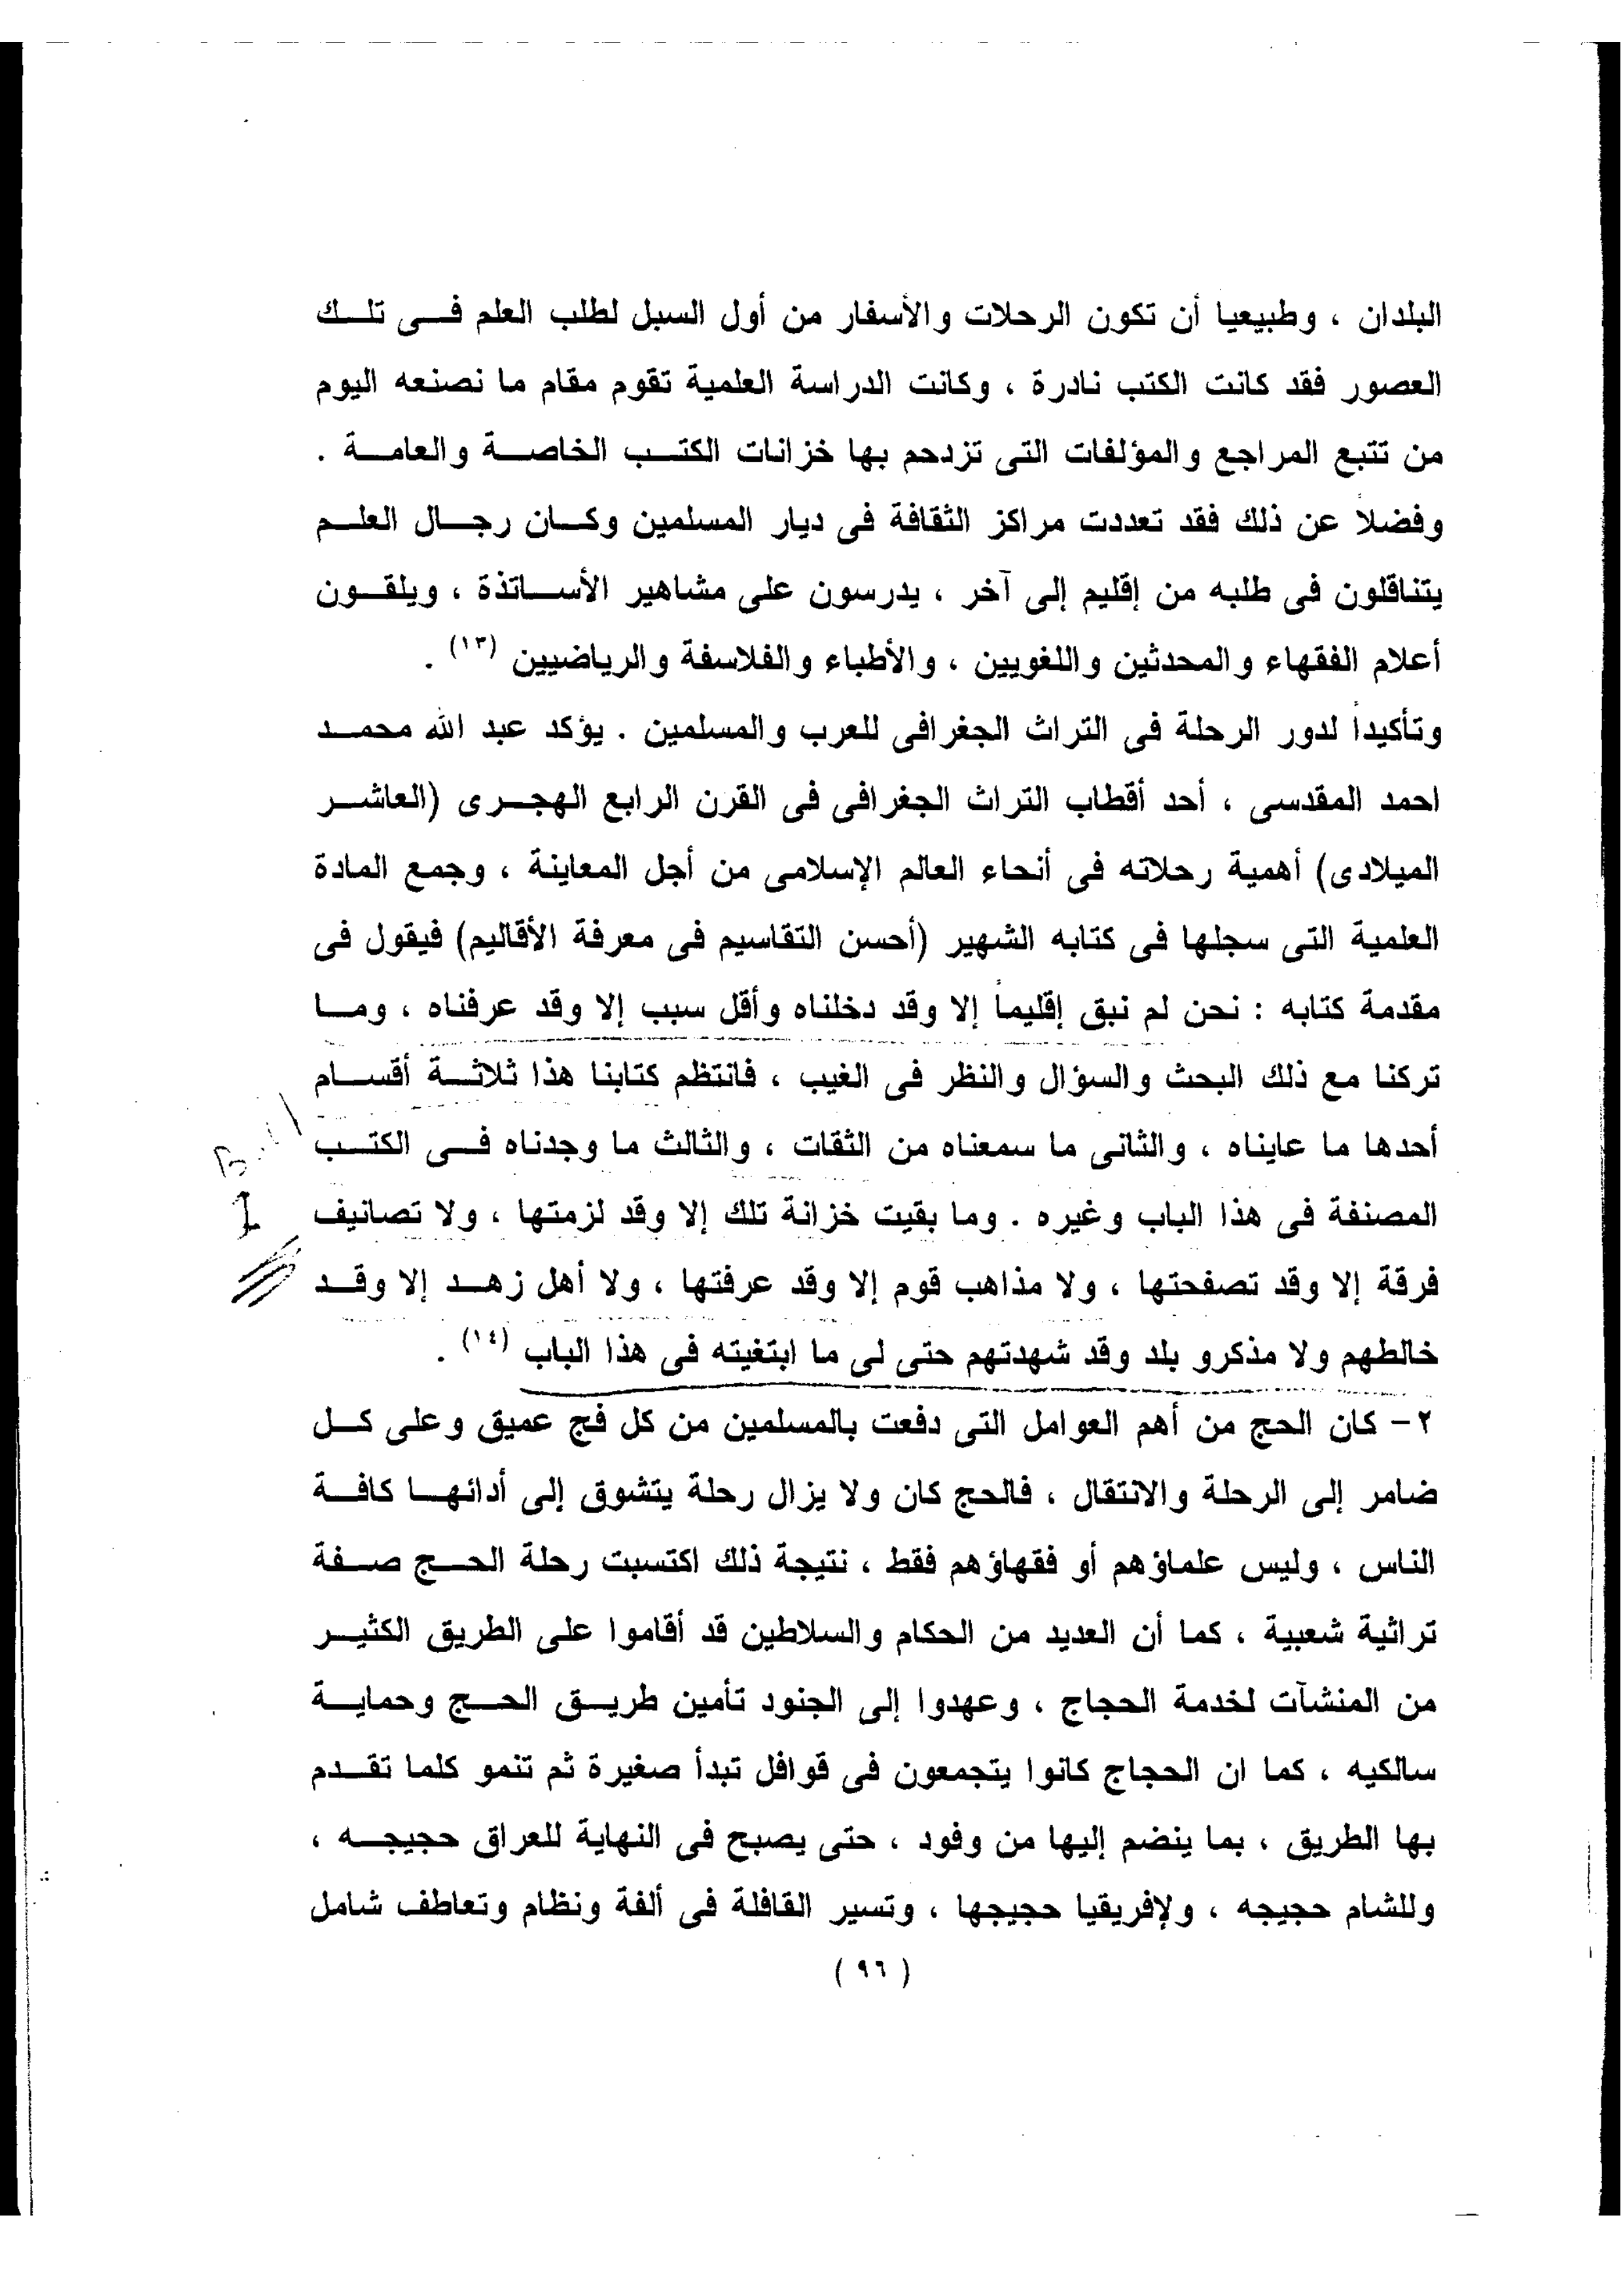 البلدان ، وطبيعيا أن تكون الرحلات والأسفار من أول السبل لطلب العلم فى تلك
العصور فقد كانت الكتب نادرة ، وكانت الدراسة العلمية تقوم مقام ما نصنعه اليوم
من تتبع المراجع والمؤلفات التى تزدحم بها خزانات الكتب الخاصة والعامة .
وفضلاً عن ذلك فقد تعددت مراكز الثقافة فى ديار المسلمين وكان رجال العلم
يتناقلون فى طلبه من إقليم إلى آخر ، يدرسون على مشاهير الأساتذة ، ويلقون
أعلام الفقهاء والمحدثين واللغويين ، والأطباء والفلاسفة والرياضيين (١٣) .
وتأكيداً لدور الرحلة فى التراث الجغرافى للعرب والمسلمين . يؤكد عبد الله محمد
احمد المقدسى ، أحد أقطاب التراث الجغرافى فى القرن الرابع الهجرى (العاشر
الميلادى) أهمية رحلاته فى أنحاء العالم الإسلامى من أجل المعاينة ، وجمع المادة
العلمية التى سجلها فى كتابه الشهير (أحسن التقاسيم فى معرفة الأقاليم) فيقول فى
مقدمة كتابه : نحن لم نبق إقليماً إلا وقد دخلناه وأقل سبب إلا وقد عرفناه ، وما
تركنا مع ذلك البحث والسؤال والنظر فى الغيب ، فانتظم كتابنا هذا ثلاثة أقسام
أحدها ما عايناه ، والثانى ما سمعناه من الثقات ، والثالث ما وجدناه فى الكتب
المصنفة فى هذا الباب وغيره . وما بقيت خزانة تلك إلا وقد لزمتها ، ولا تصانيف
فرقة إلا وقد تصفحتها ، ولا مذاهب قوم إلا وقد عرفتها ، ولا أهل زهد إلا وقد
خالطهم ولا مذكرو بلد وقد شهدتهم حتى لى ما ابتغيته فى هذا الباب (١٤) .
٢- كان الحج من أهم العوامل التى دفعت بالمسلمين من كل فج عميق وعلى كل
ضامر إلى الرحلة والانتقال ، فالحج كان ولا يزال رحلة يتشوق إلى أدائها كافة
الناس ، وليس علماؤهم أو فقهاؤهم فقط ، نتيجة ذلك اكتسبت رحلة الحج صفة
تراثية شعبية ، كما أن العديد من الحكام والسلاطين قد أقاموا على الطريق الكثير
من المنشآت لخدمة الحجاج ، وعهدوا إلى الجنود تأمين طريق الحج وحماية
سالكيه ، كما ان الحجاج كانوا يتجمعون فى قوافل تبدأ صغيرة ثم تنمو كلما تقدم
بها الطريق ، بما ينضم إليها من وفود ، حتى يصبح فى النهاية للعراق حجيجه ،
وللشام حجيجه ، ولإفريقيا حجيجها ، وتسير القافلة فى ألفة ونظام وتعاطف شامل
( ٩٦ )